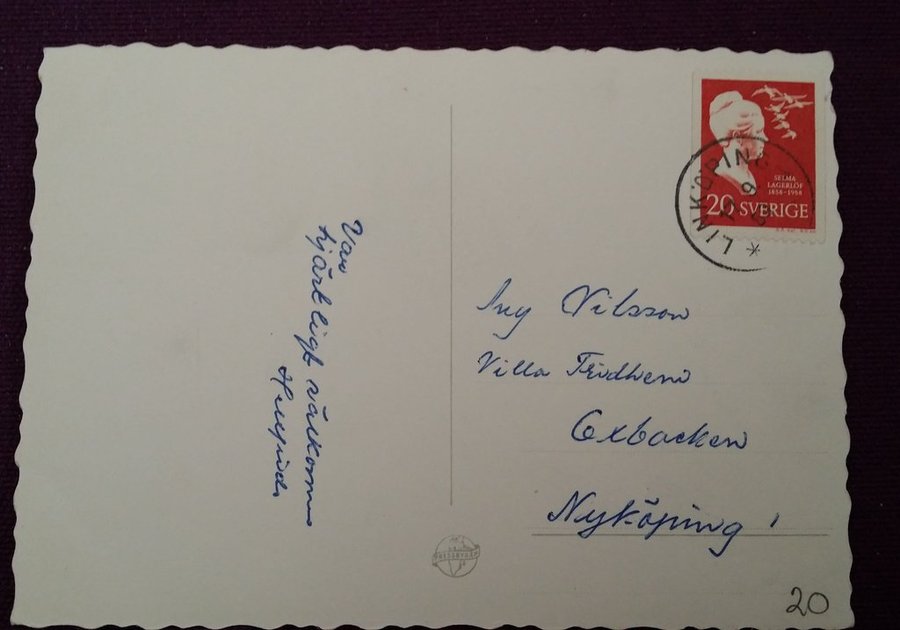 Var
hjärtligt välkommen
SELMA
LAGERLÖF
1858-1958
20 SVERIGE
LINKÖPING
Ing Nilsson
Villa Fridhem
Oxbacken
Nyköping 1
PRESSBYRÅN
20